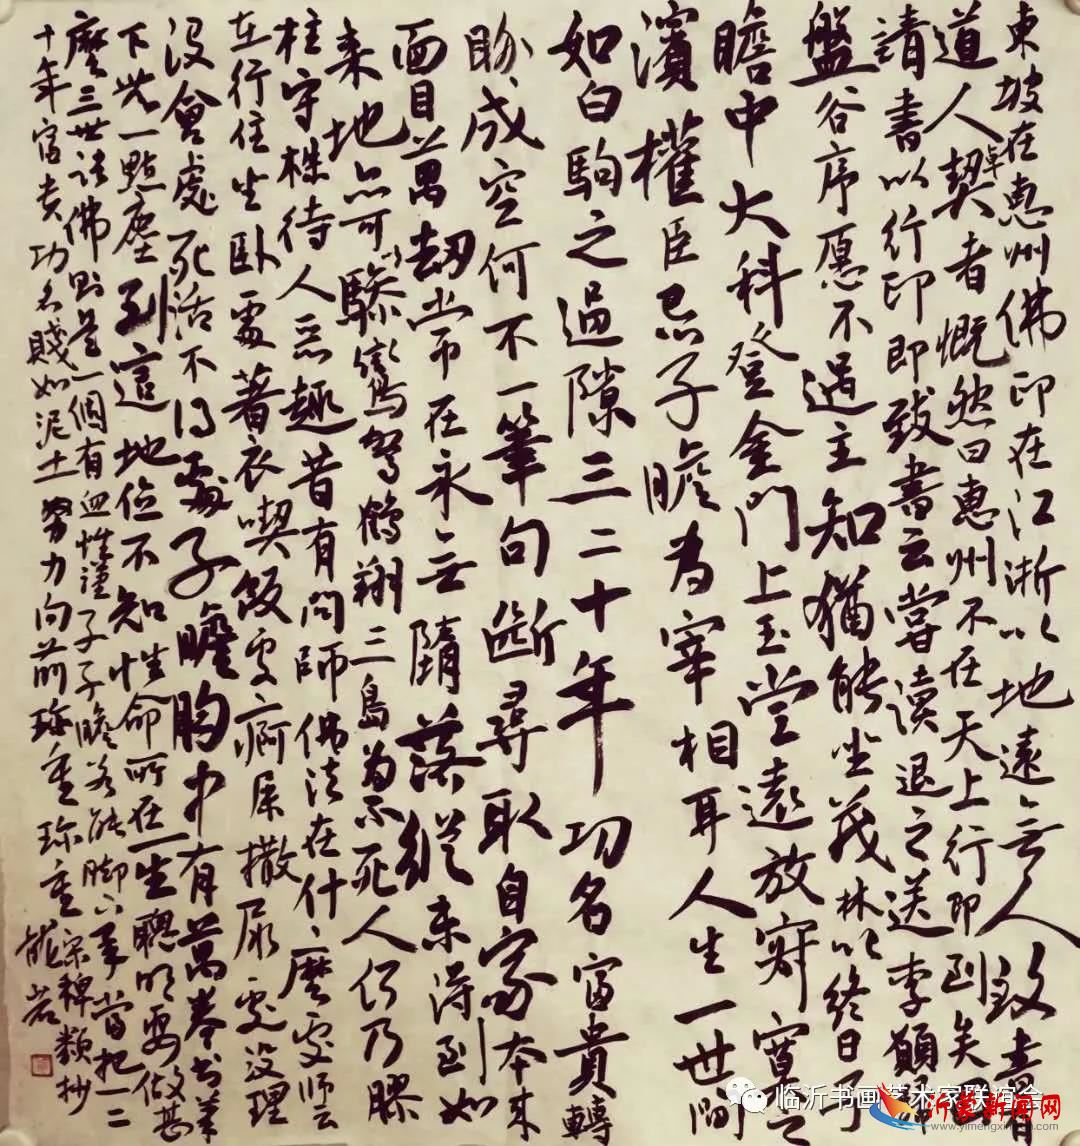 東坡在惠州佛印在江浙以地遠无人致書
道人卓契者慨然曰惠州不在天上行即到矣
請書以行印即致書云嘗读退之送李願
盤谷序愿不遇主知猶能坐茂林以终日子
瞻中大科登金門上玉堂遠放寂寞之
濱權臣忌子瞻為宰相耳人生一世間
如白駒之過隙三二十年功名富貴轉
盼成空何不一筆句断尋取自家本来
面目萬劫常在永无隋落縱未得到如
来地亦可以驂鸞駕鶴翔三島為不死人何乃膠
柱守株待人惡趣昔有問師佛法在什麼處师云
在行住坐卧處著衣喫飯處痾屎撒尿處没理
没會處死活不得處子瞻胸中有萬卷书筆
下无一點塵到這地位不知性命所在一生聰明要做甚
麼三世诸佛則是一個有血性漢子子瞻若能脚下承當把一二
十年富贵功名賤如泥土努力向前珍重珍重宋稗類抄
龍岩
临沂书画艺术家联谊会
沂蒙新闻网
www.yimengxinwen.com